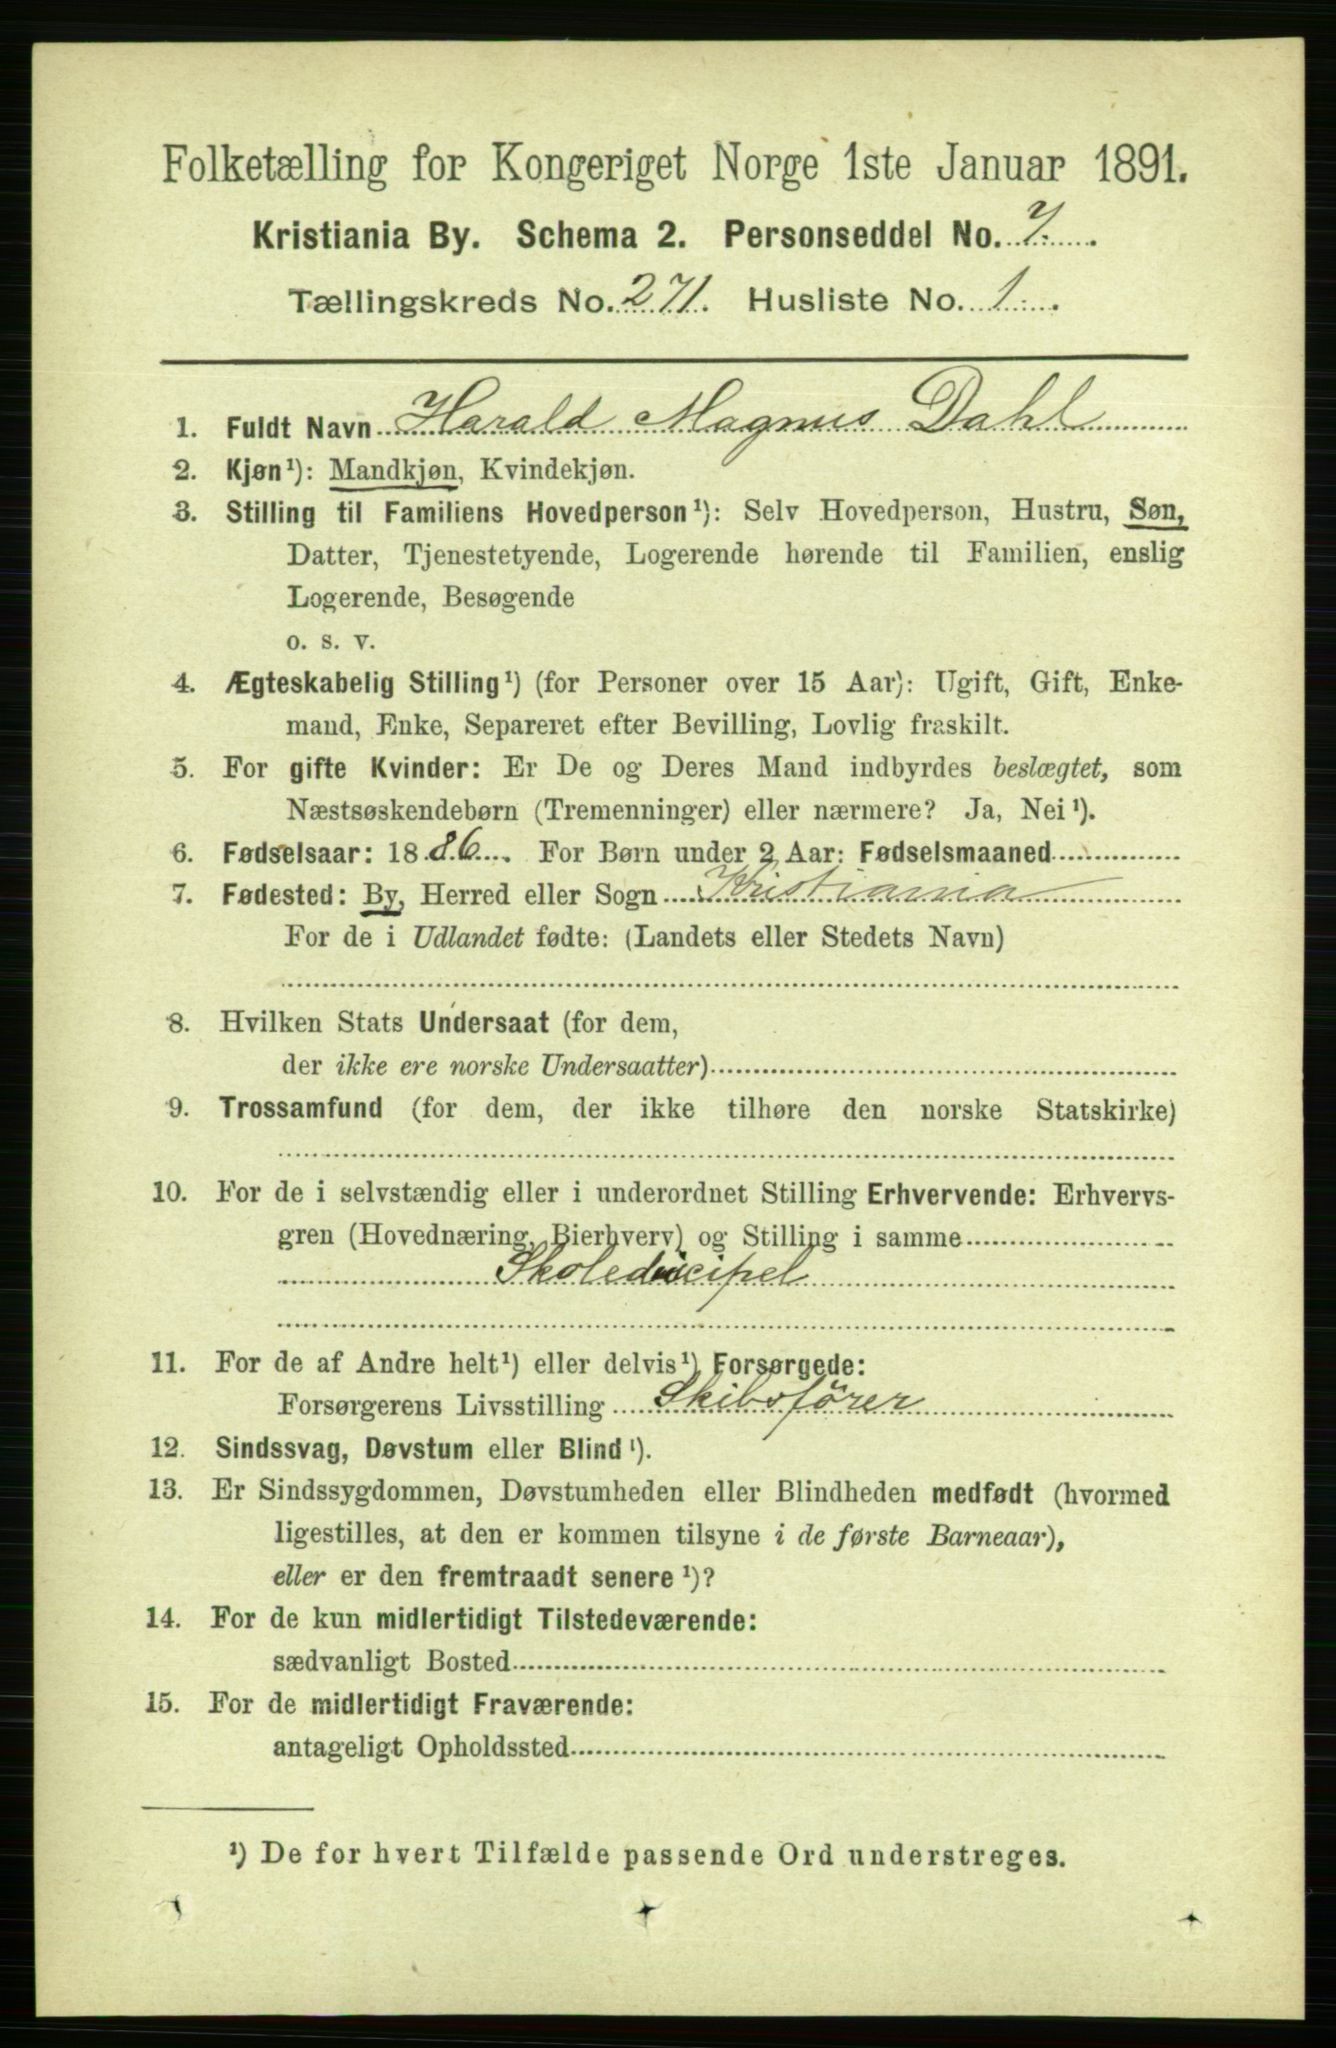 Folketælling for Kongeriget Norge 1ste Januar 1891.
Kristiania By. Schema 2. Personseddel No. 7.
Tællingskreds No. 271. Husliste No. 1.
1. Fuldt Navn Harald Magnus Dahl
2. Kjøn¹): Mandkjøn, Kvindekjøn.
3. Stilling til Familiens Hovedperson¹): Selv Hovedperson, Hustru, Søn,
Datter, Tjenestetyende, Logerende hørende til Familien, enslig
Logerende, Besøgende
o. s. v.
4. Ægteskabelig Stilling¹) (for Personer over 15 Aar): Ugift, Gift, Enke-
mand, Enke, Separeret efter Bevilling, Lovlig fraskilt.
5. For gifte Kvinder: Er De og Deres Mand indbyrdes beslægtet, som
Næstsøskendebørn (Tremenninger) eller nærmere? Ja, Nei¹).
6. Fødselsaar: 1886. For Børn under 2 Aar: Fødselsmaaned
7. Fødested: By, Herred eller Sogn Kristiania
For de i Udlandet fødte: (Landets eller Stedets Navn)
8. Hvilken Stats Undersaat (for dem,
der ikke ere norske Undersaatter)
9. Trossamfund (for dem, der ikke tilhøre den norske Statskirke)
10. For de i selvstændig eller i underordnet Stilling Erhvervende: Erhvervs-
gren (Hovednæring, Bierhverv) og Stilling i samme
Skoledicipel
11. For de af Andre helt¹) eller delvis¹) Forsørgede:
Forsørgerens Livsstilling Skibsfører
12. Sindssvag, Døvstum eller Blind¹).
13. Er Sindssygdommen, Døvstumheden eller Blindheden medfødt (hvormed
ligestilles, at den er kommen tilsyne i de første Barneaar),
eller er den fremtraadt senere¹)?
14. For de kun midlertidigt Tilstedeværende:
sædvanligt Bosted
15. For de midlertidigt Fraværende:
antageligt Opholdssted
¹) De for hvert Tilfælde passende Ord understreges.